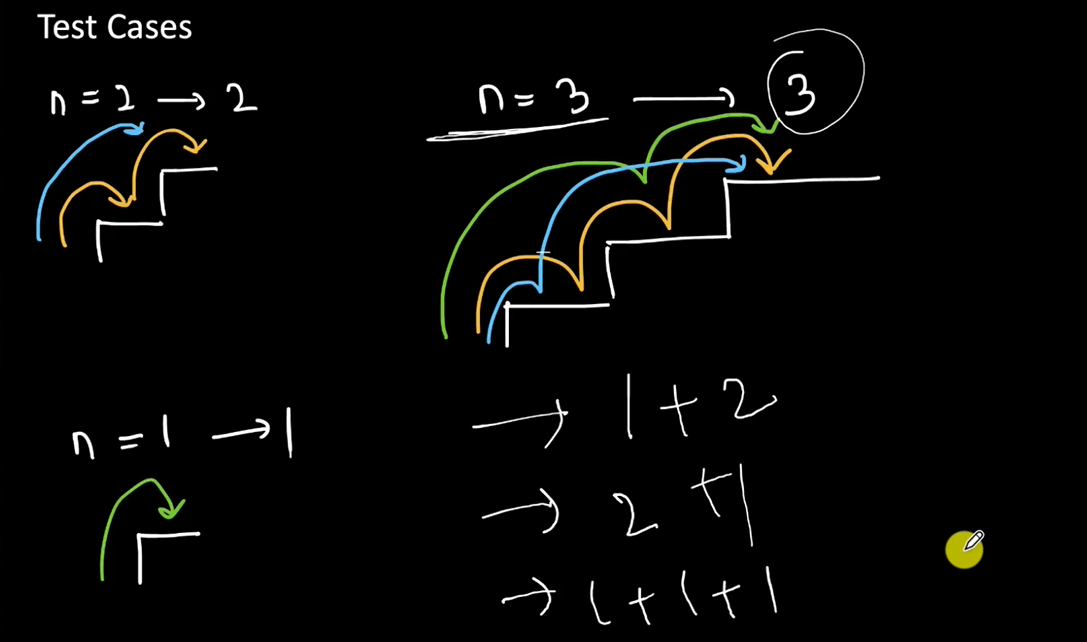 Test Cases
n = 2 → 2
n = 3 → 3
n = 1 → 1
→ 1 + 2
→ 2 + 1
→ 1 + 1 + 1